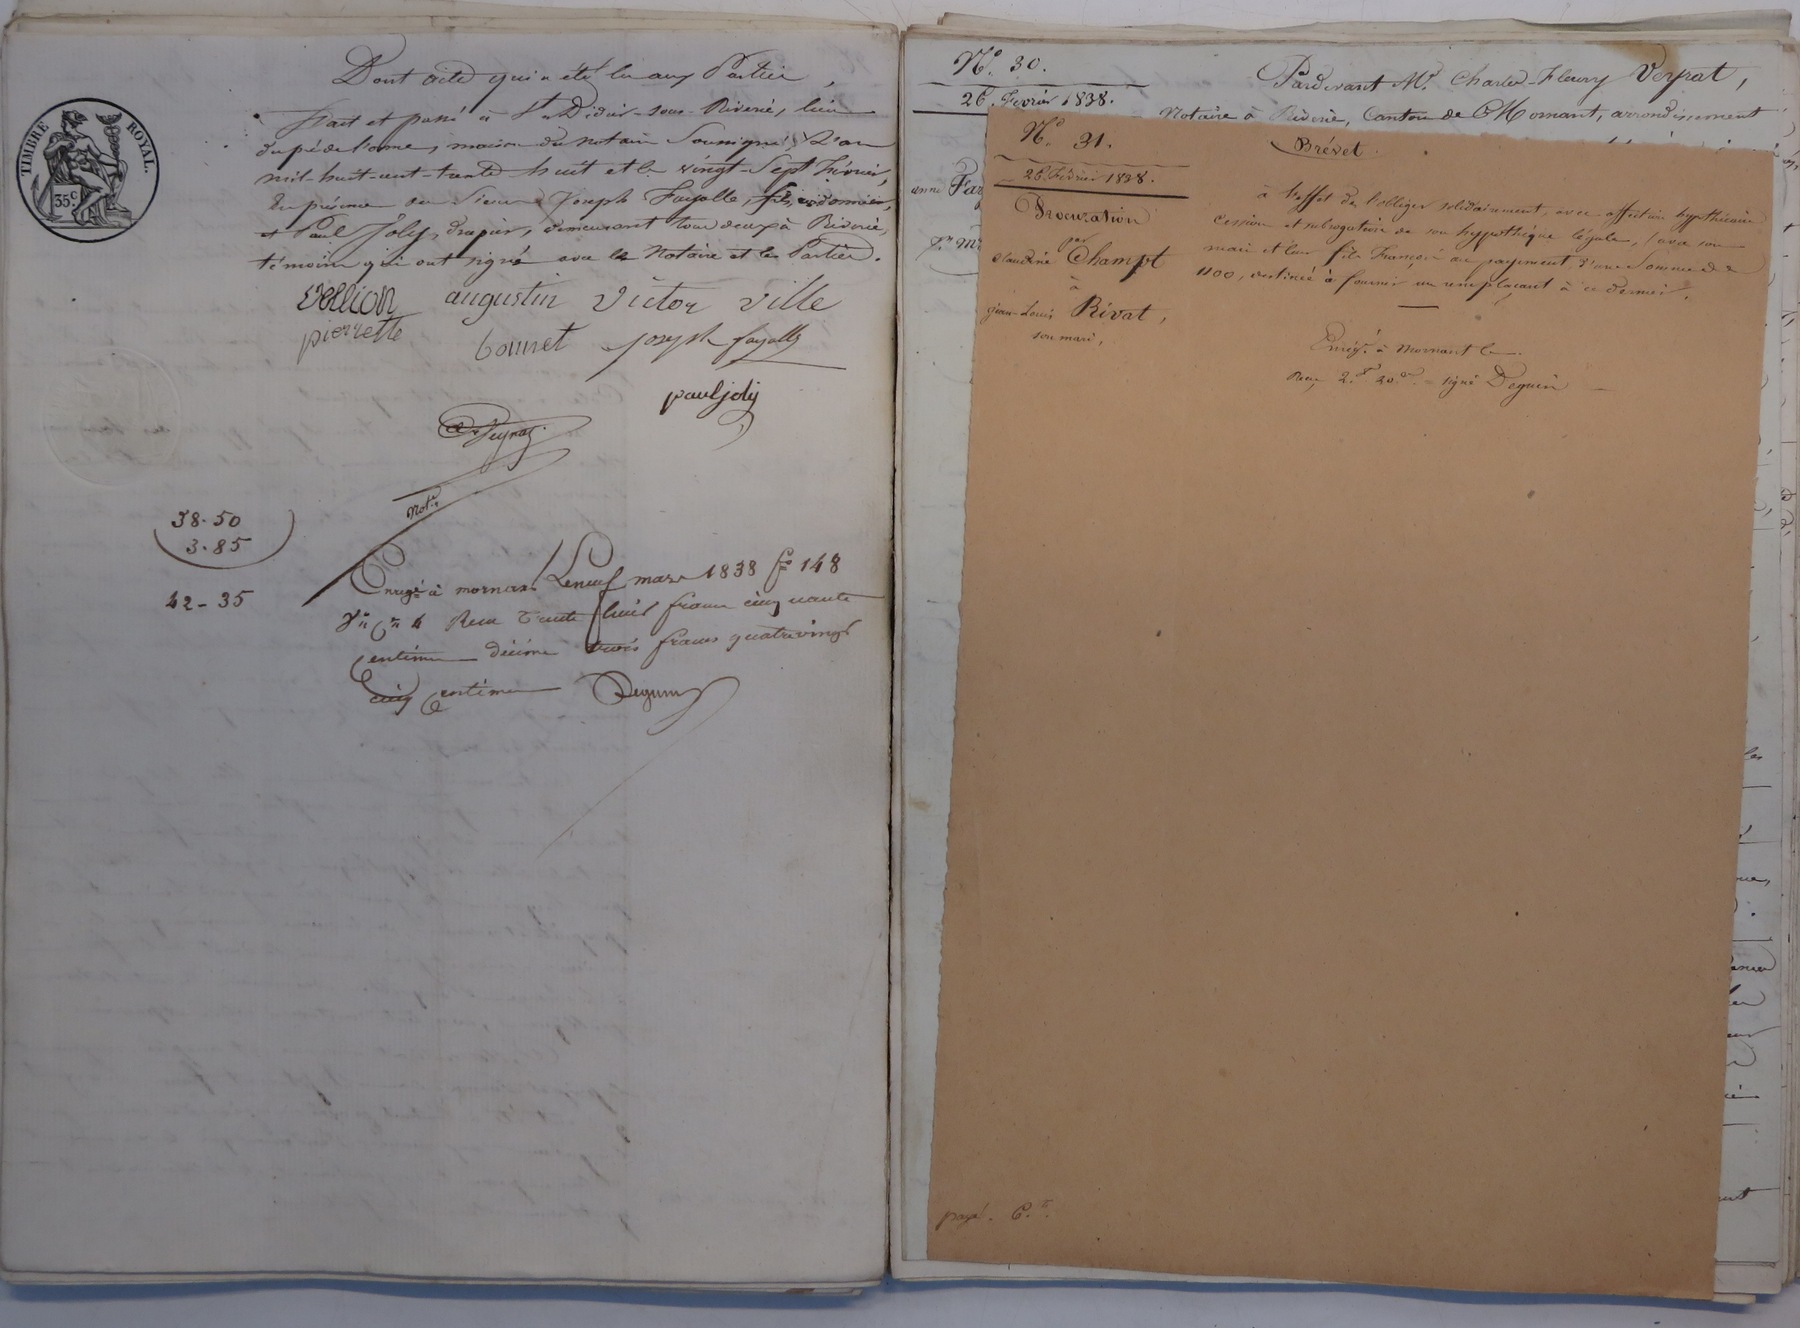 TIMBRE ROYAL.
35 c.
Dont acte qui a été lu aux Parties,
Fait et passé à St Didier-sous-Riverie, lieu
du pé de lorme, maison du notaire Soussigné, L'an
mil-huit-cent-trente huit et le vingt-Sept Février,
En présence des Sieurs Joseph Fayolle, fils, cordonnier,
et Paul Joly, drapier, demeurant tous deux à Riverie,
témoins qui ont signé avec le Notaire et les Parties.
augustin victor ville
pierrette bonnet joseph fayolle
paul joly
Veyrat
Not.re
38.50
3.85
42-35
Enregé à mornant Le neuf mars 1838 f° 148
V° Cse 4 Reçu trente huit francs cinquante
Centimes décime trois francs quatrevingt
cinq Centimes Deguin
N.° 30.
26. Fevrier 1838.
Pardevant M.e Charles-Fleury Veyrat,
Notaire à Riverie, Canton de Mornant, arrondissement
N.° 31.
26. Février 1838.
Procuration
par
Claudine Champt
à
jean-Louis Rivat,
son mari,
Brévet.
à l'effet de l'obliger solidairement, avec affection hypothécaire
Cession et subrogation de son hypothéque légale, avec son
mari et leur fils François au payement d'une Somme de
1100, destinée à fournir un remplaçant à ce dernier.
Enreg.é à Mornant le
Reçu 2.f 20.c = signé Deguin
payé.